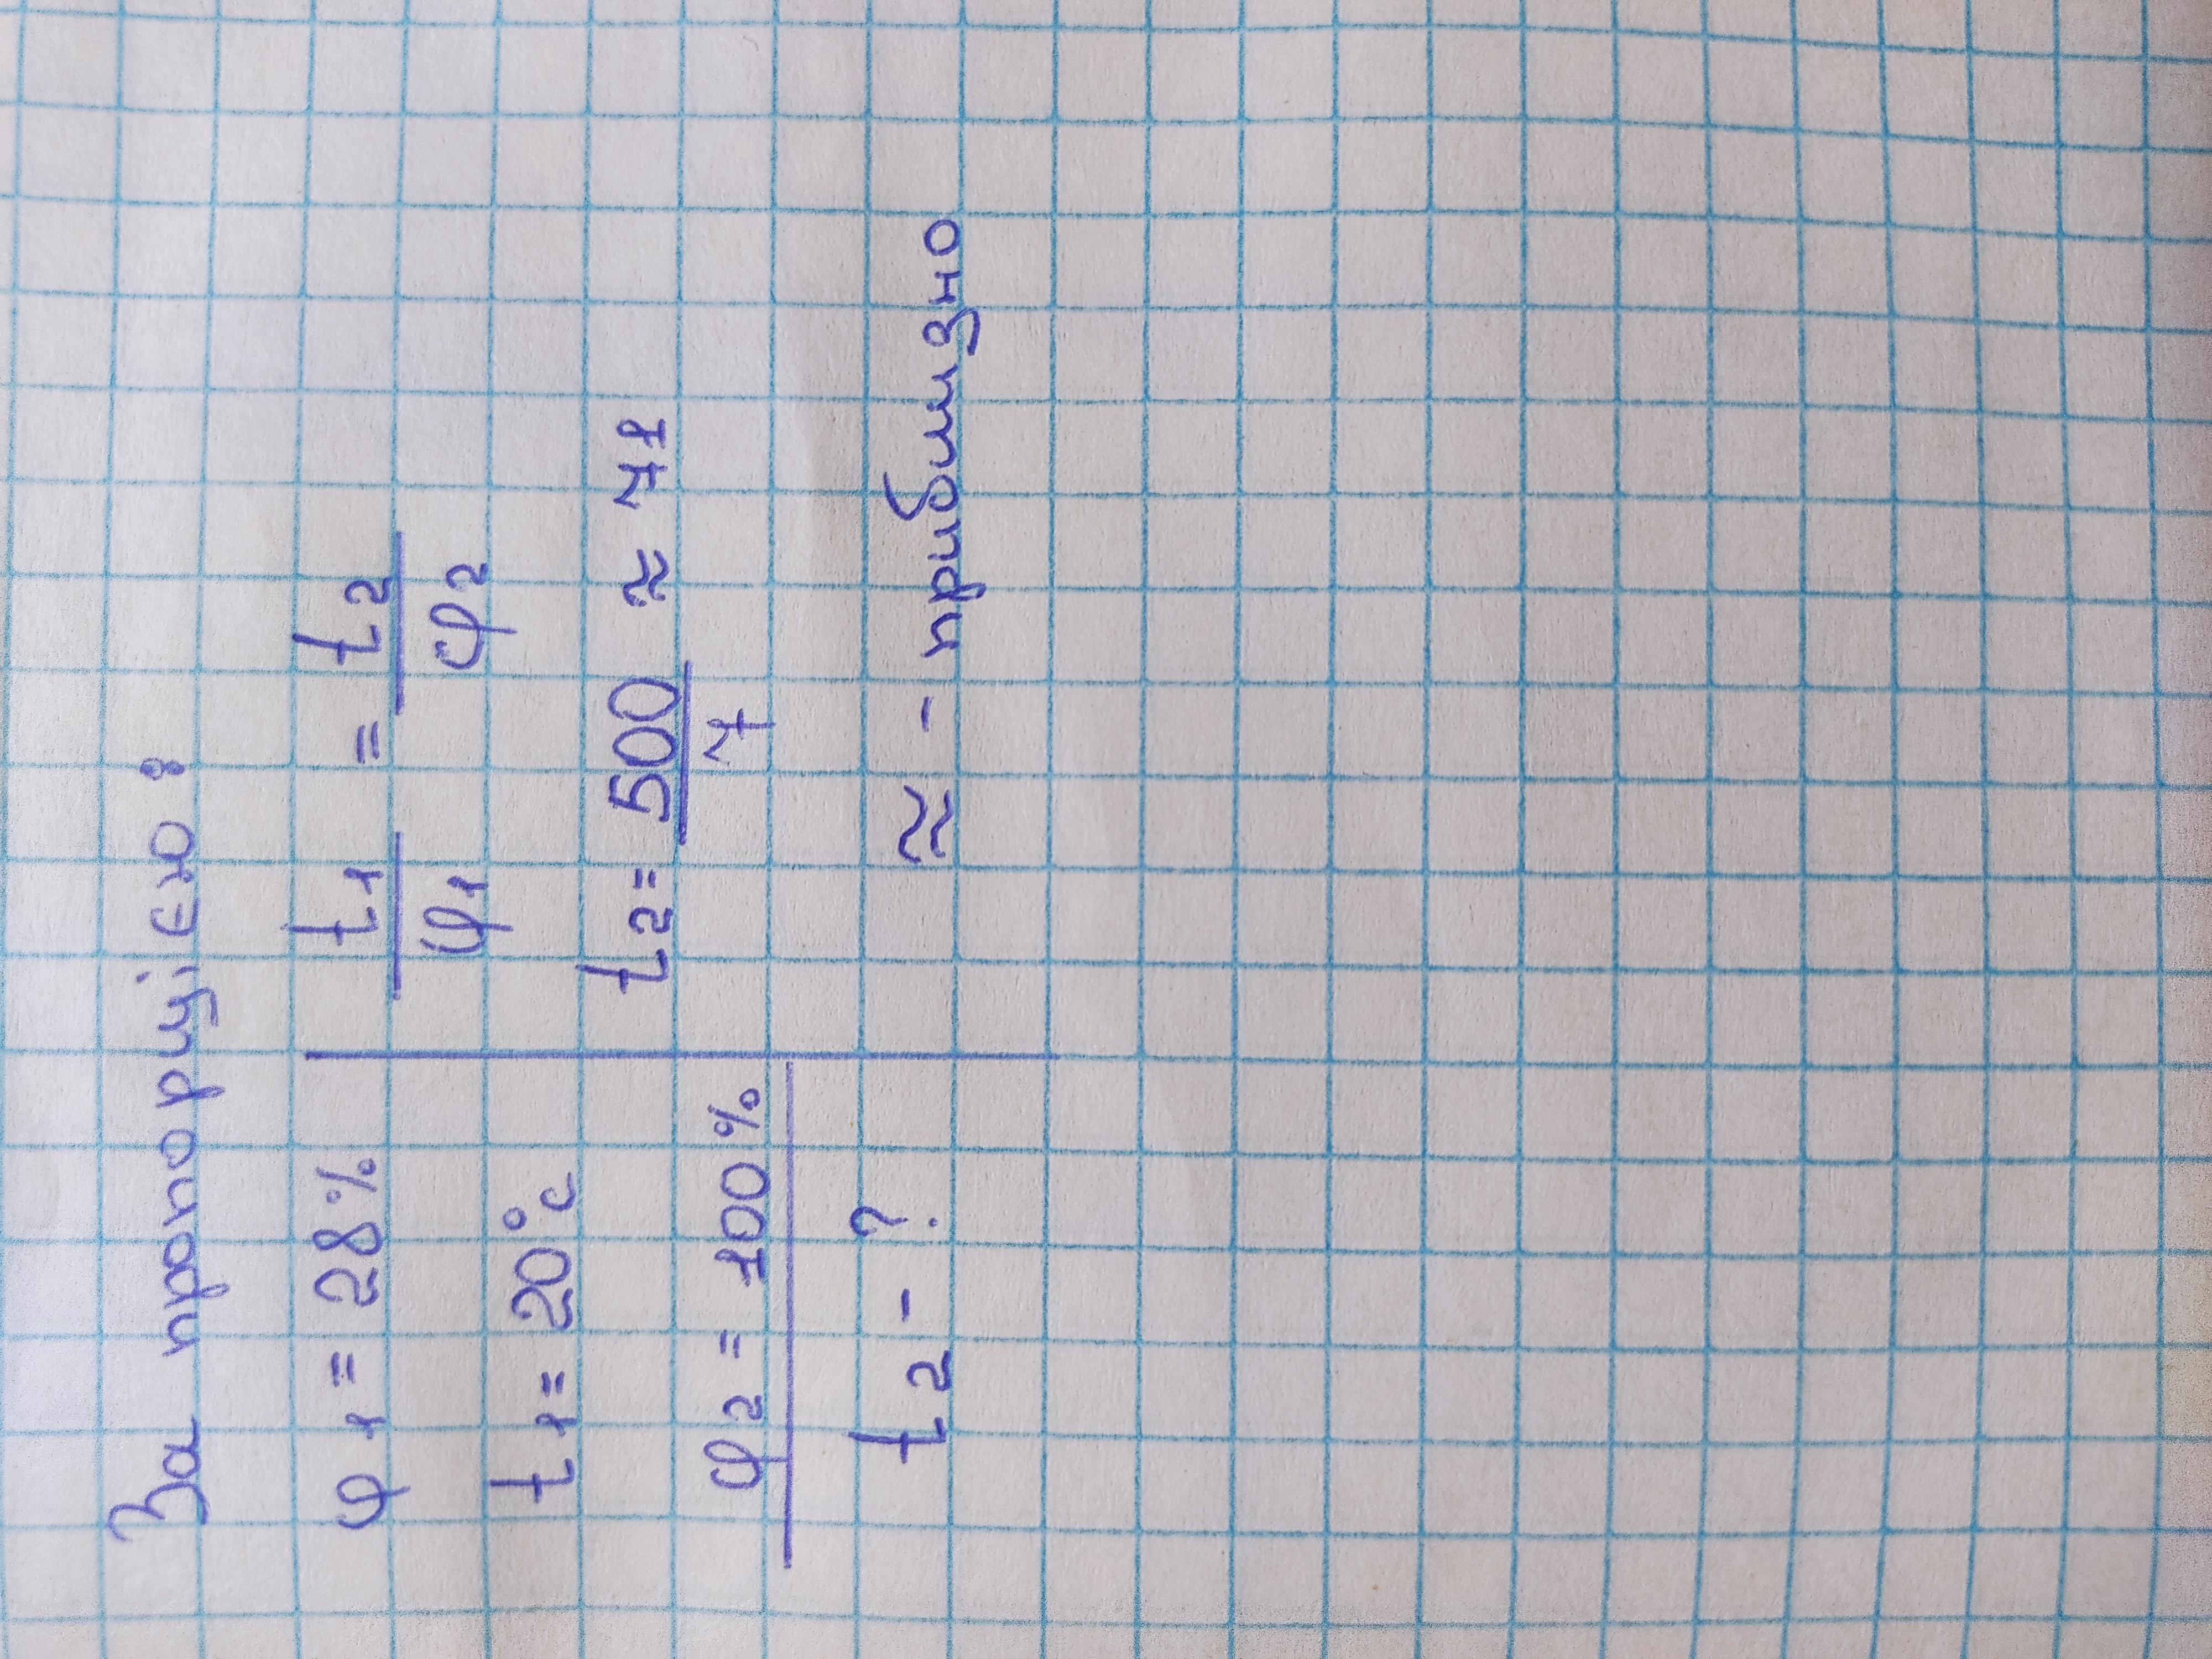 За пропорцією:
φ₁ = 28%
t₁ = 20°C
φ₂ = 100%
t₂ - ?
t₁/φ₁ = t₂/φ₂
t₂ = 500/7 ≈ 71
≈ - приблизно